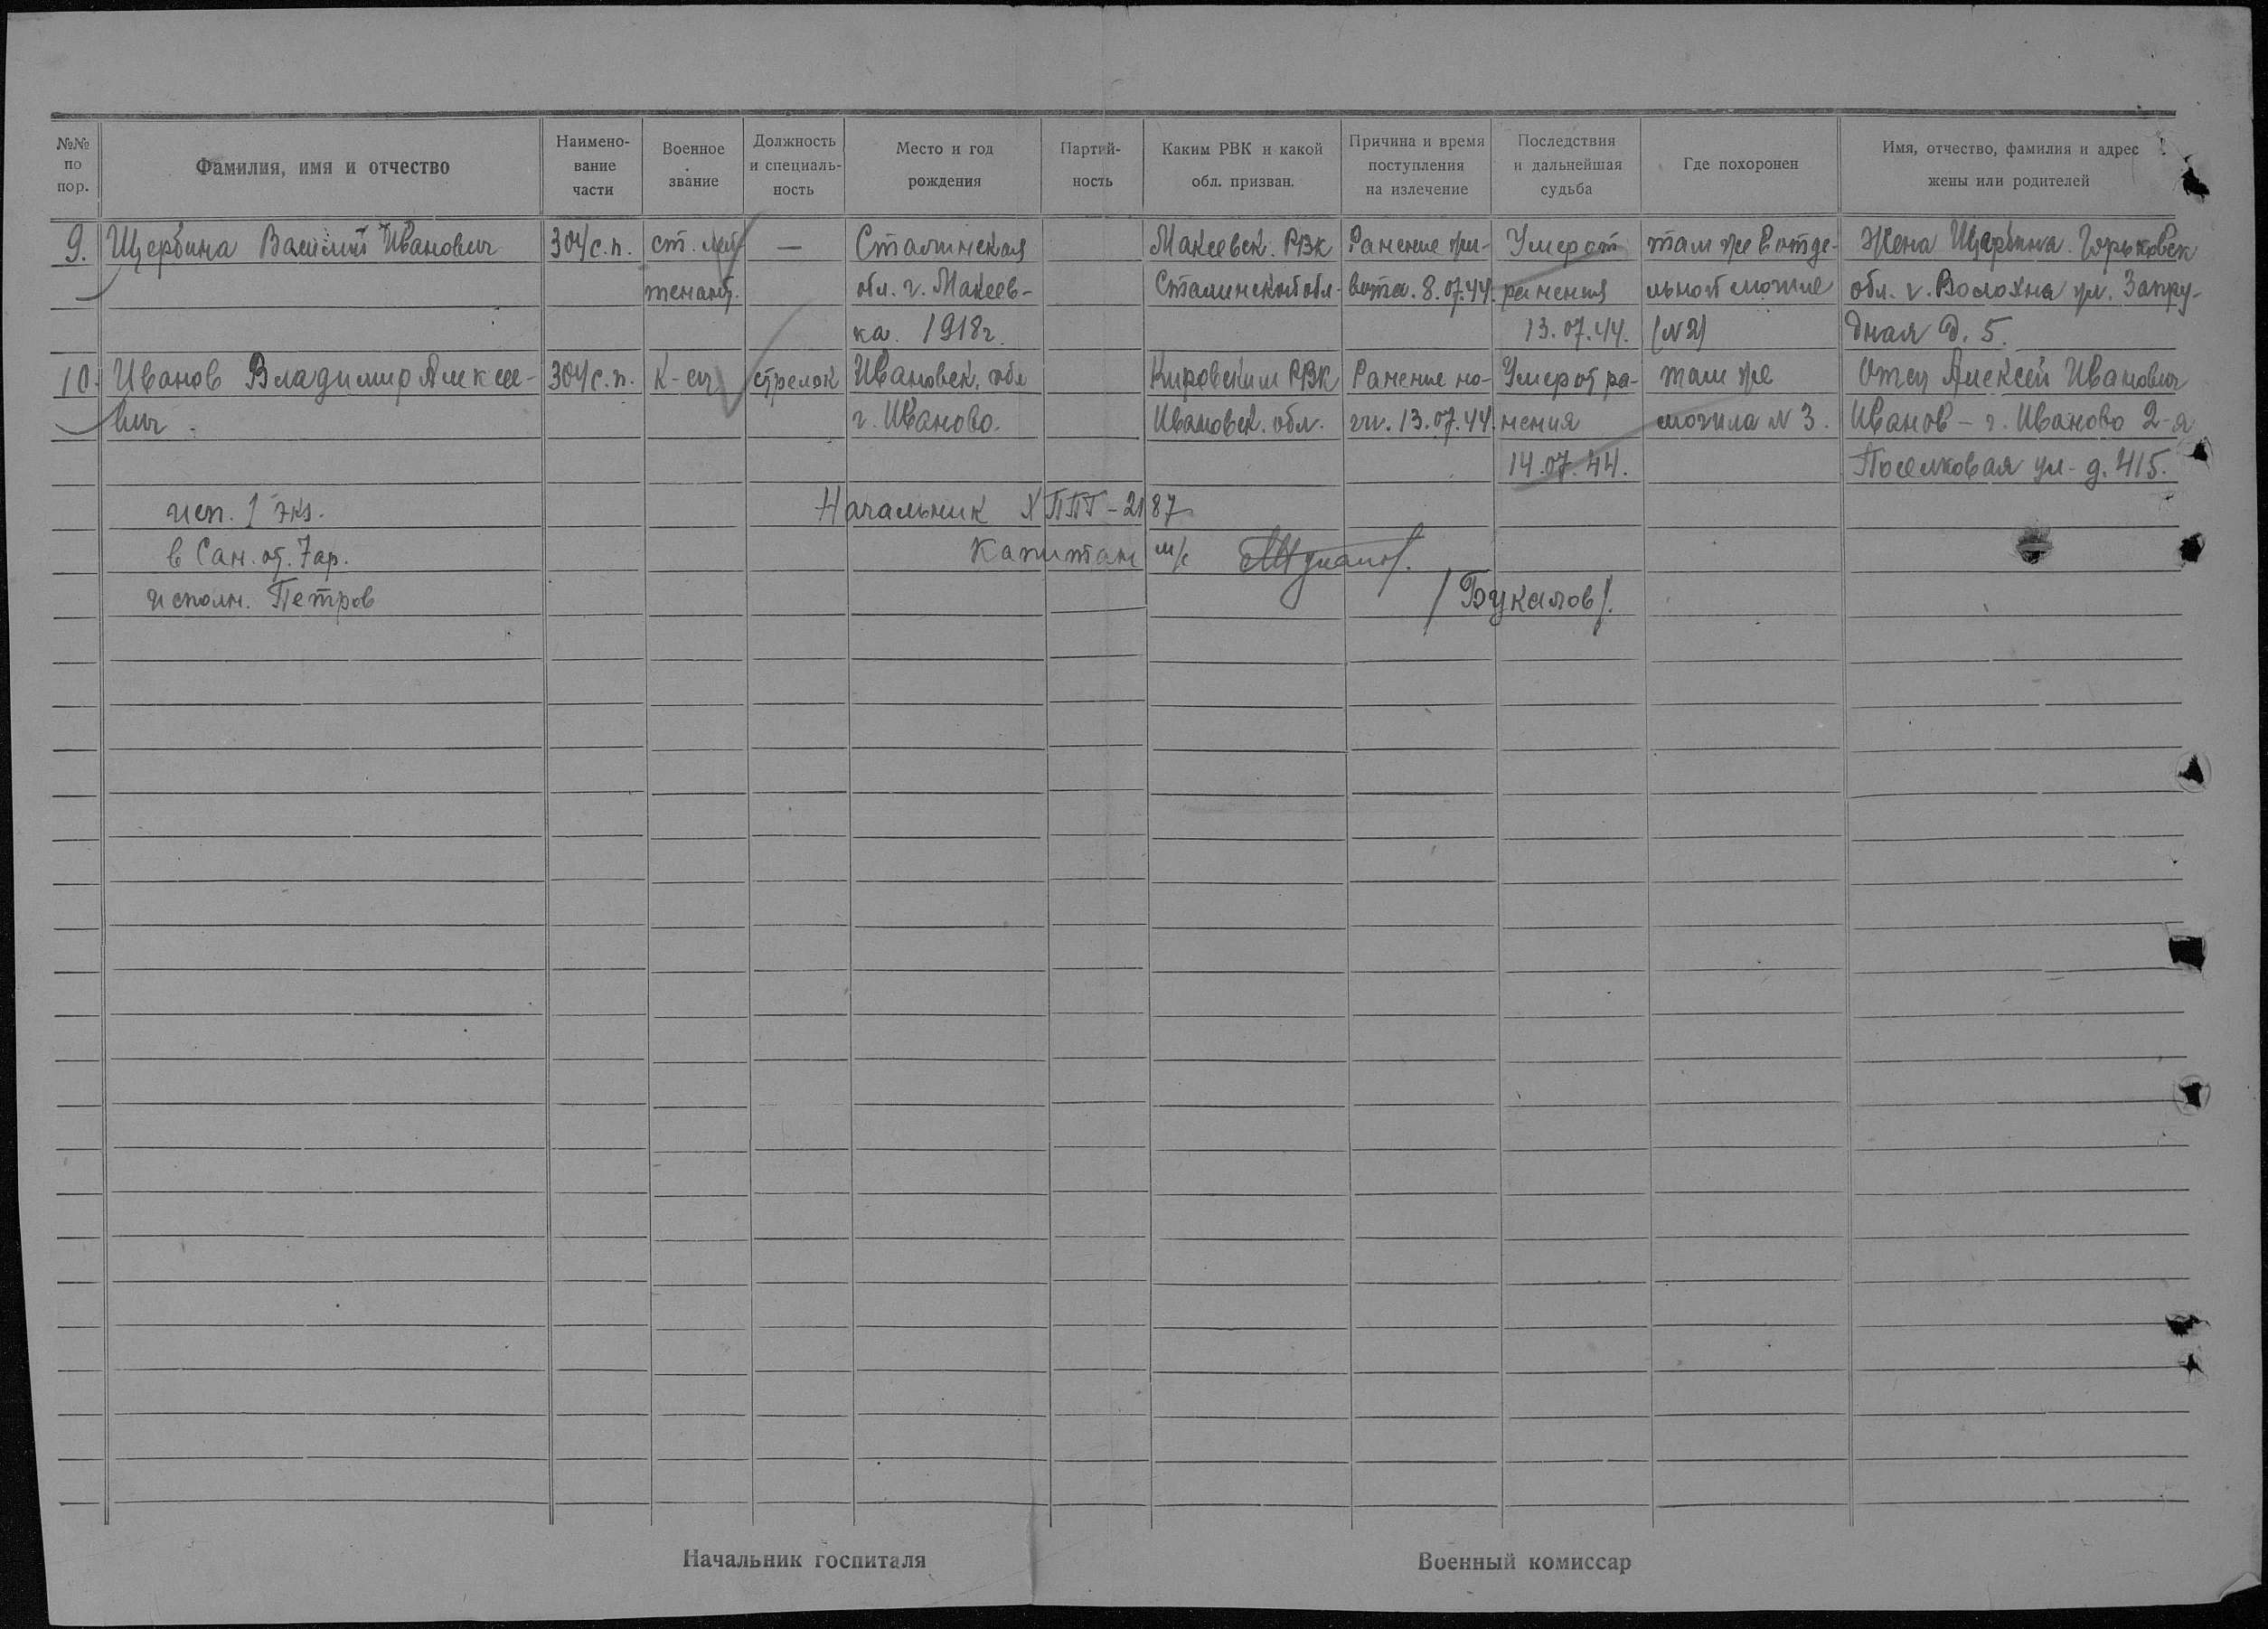 №№ по пор.
Фамилия, имя и отчество
Наимено-
вание
части
Военное
звание
Должность
и специаль-
ность
Место и год
рождения
Партий-
ность
Каким РВК и какой
обл. призван.
Причина и время
поступления
на излечение
Последствия
и дальнейшая
судьба
Где похоронен
Имя, отчество, фамилия и адрес
жены или родителей
9.
Щербина Василий Иванович
304 с.п.
ст. лей
тенант.
—
Сталинская
обл. г. Макеев-
ка. 1918г.
Макеевск. РВК
Сталинской обл.
Ранение жи-
вота. 8.07.44.
Умер от
ранения
13.07.44.
там же в отде-
льной могиле
(N2)
Жена Щербина. Горьковск
обл. г. Запру-
дная д. 5.
10.
Иванов Владимир Алексее-
вич.
304 с.п.
к-ец
стрелок
Ивановск. обл
г. Иваново.
Кировским РВК
Ивановск. обл.
Ранение но-
ги. 13.07.44.
Умер от ра-
нения
14.07.44.
там же
могила N 3.
Отец Алексей Иванович
Иванов - г. Иваново 2-я
Поселковая ул. д. 415.
исп. 1 экз.
в Сан. от. 7 ар.
исполн. Петров
Начальник ХППГ-2187
Капитан м/с
/Букалов/.
Начальник госпиталя
Военный комиссар